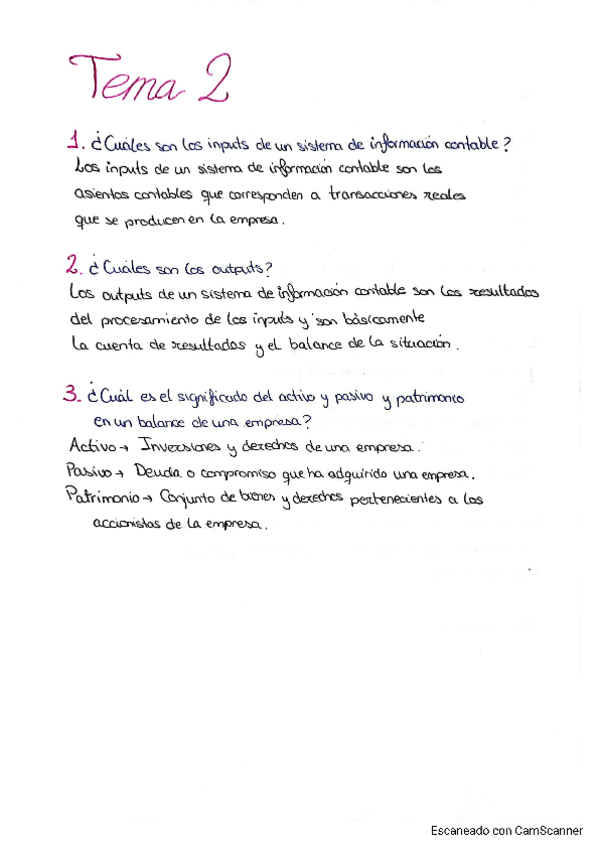 Tema 2
1. ¿Cuáles son los inputs de un sistema de información contable?
Los inputs de un sistema de información contable son los
asientos contables que corresponden a transacciones reales
que se producen en la empresa.
2. ¿Cuáles son los outputs?
Los outputs de un sistema de información contable son los resultados
del procesamiento de los inputs y son básicamente
la cuenta de resultados y el balance de la situación.
3. ¿Cuál es el significado del activo y pasivo y patrimonio
en un balance de una empresa?
Activo → Inversiones y derechos de una empresa.
Pasivo → Deuda o compromiso que ha adquirido una empresa.
Patrimonio → Conjunto de bienes y derechos pertenecientes a los
accionistas de la empresa.
Escaneado con CamScanner